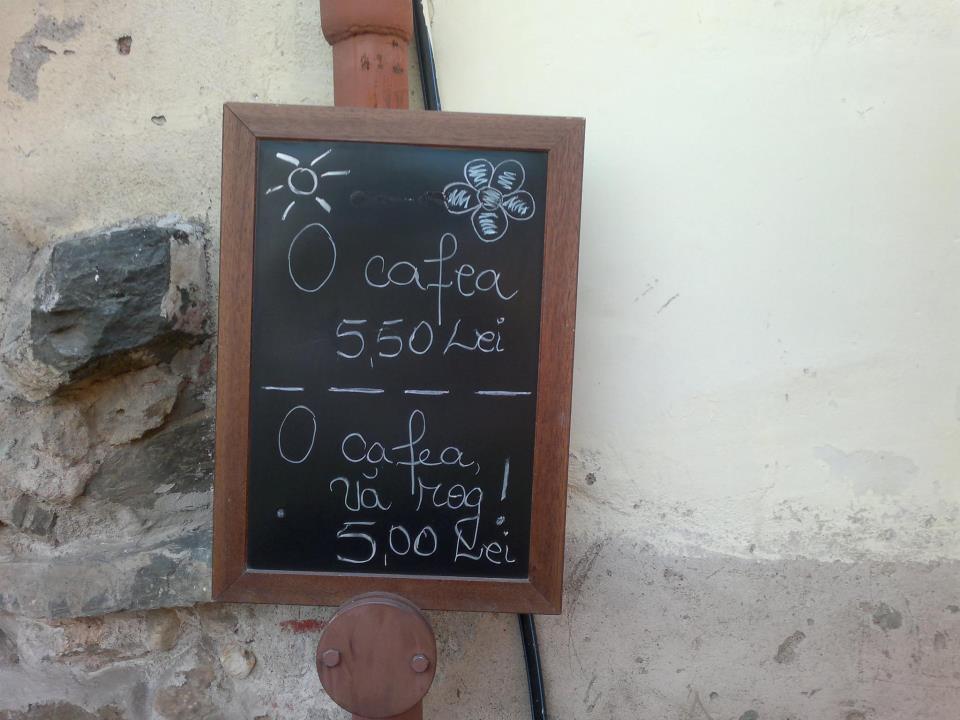 O cafea
5,50 Lei
O cafea,
Vă rog!
5,00 Lei